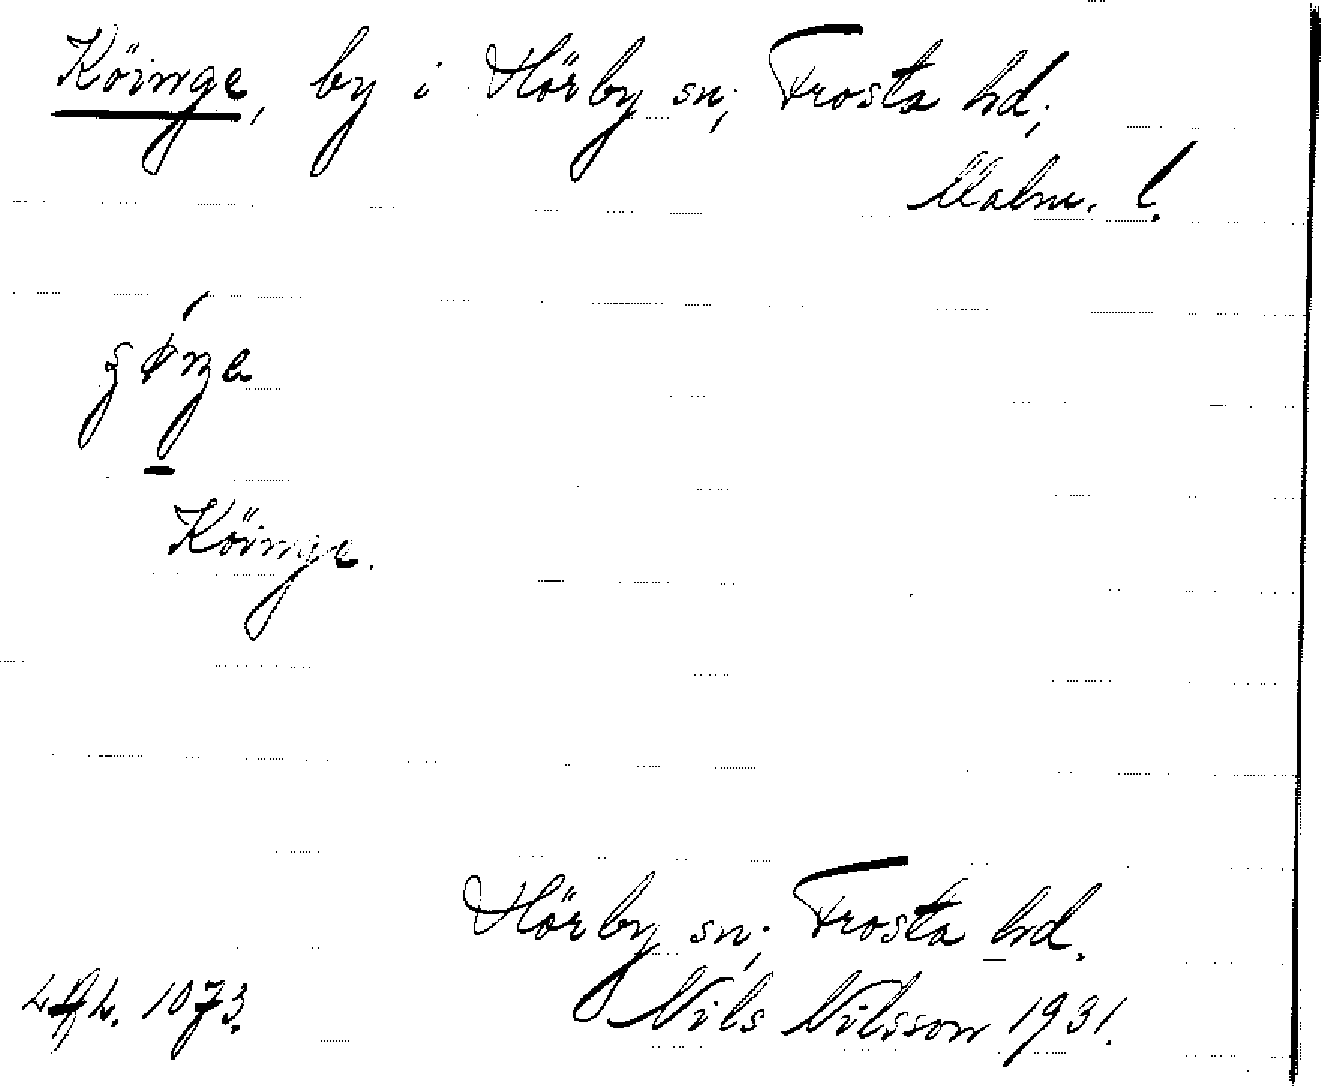 Köinge, by i Hörby sn; Frosta hd;
Malm. l.
Köinge.
Hörby sn; Frosta hd.
1073.
Nils Nilsson 1931.